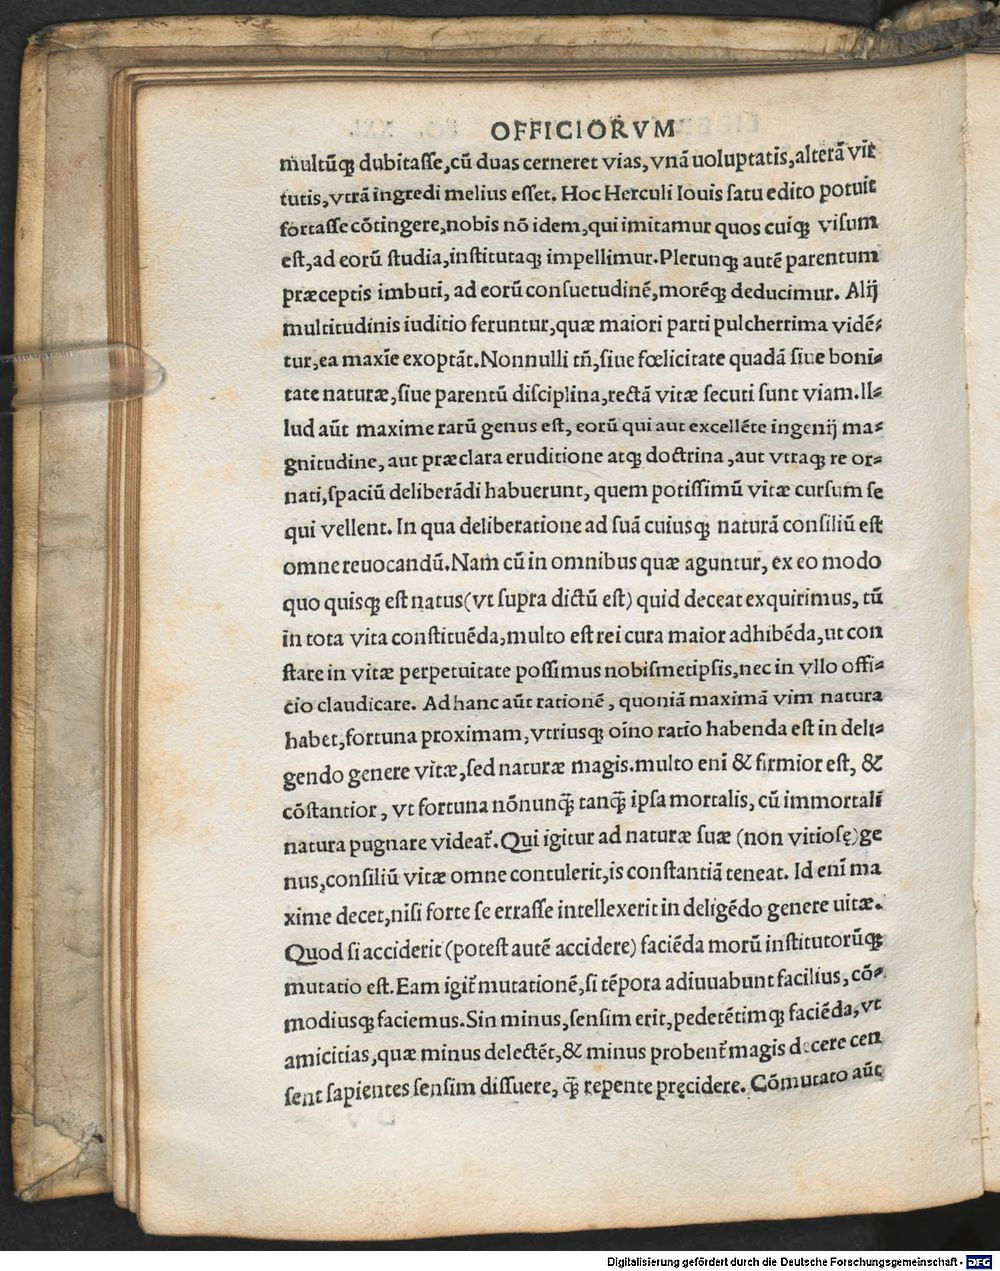 OFFICIORVM
multũq; dubitaſſe,cũ duas cerneret vias, vnã uoluptatis,alterã vir
tutis,vtrã ingredi melius eſſet. Hoc Herculi Iouis ſatu edito potuit
fortaſſe cõtingere,nobis nõ idem,qui imitamur quos cuiq; viſum
eſt,ad eorũ ſtudia,inſtitutaq; impellimur.Plerunq; autẽ parentum
præceptis imbuti, ad eorũ conſuetudinẽ,morẽq; deducimur. Alij
multitudinis iuditio feruntur,quæ maiori parti pulcherrima vidẽ-
tur,ea maxĩe exoptãt.Nonnulli tñ,ſiue fœlicitate quadã ſiue boni-
tate naturæ,ſiue parentũ diſciplina,rectã vitæ ſecuti ſunt viam.Il-
lud aũt maxime rarũ genus eſt, eorũ qui aut excellẽte ingenij ma-
gnitudine, aut præclara eruditione atq; doctrina ,aut vtraq; re or-
nati,ſpaciũ deliberãdi habuerunt, quem potiſſimũ vitæ curſum ſe
qui vellent. In qua deliberatione ad ſuã cuiusq; naturã conſiliũ eſt
omne reuocandũ.Nam cũ in omnibus quæ aguntur, ex eo modo
quo quisq; eſt natus(vt ſupra dictũ eſt) quid deceat exquirimus, tũ
in tota vita conſtituẽda,multo eſt rei cura maior adhibẽda,ut con
ſtare in vitæ perpetuitate poſſimus nobiſmetipſis,nec in vllo offi-
cio claudicare. Ad hanc aũt rationẽ, quoniã maximã vim natura
habet,fortuna proximam,vtriusq; oĩno ratio habenda eſt in deli-
gendo genere vitæ,ſed naturæ magis.multo enĩ & firmior eſt, &
cõſtantior, vt fortuna nõnunq̃ tanq̃ ipſa mortalis, cũ immortali
natura pugnare videat̃. Qui igitur ad naturæ ſuæ (non vitioſę)ge
nus,conſiliũ vitæ omne contulerit,is conſtantiã teneat. Id enĩ ma
xime decet,niſi forte ſe erraſſe intellexerit in deligẽdo genere uitæ.
Quod ſi acciderit (poteſt autẽ accidere) faciẽda morũ inſtitutorũq;
mutatio eſt.Eam igit̃ mutationẽ,ſi tẽpora adiuuabunt facilius, cõ-
modiusq; faciemus.Sin minus,ſenſim erit,pedetẽtimq; faciẽda,vt
amicitias,quæ minus delectẽt,& minus probent̃ magis decere cen
ſent ſapientes ſenſim diſſuere, q̃ repente pręcidere. Cõmutato aũt
Digitalisierung gefördert durch die Deutsche Forschungsgemeinschaft - DFG